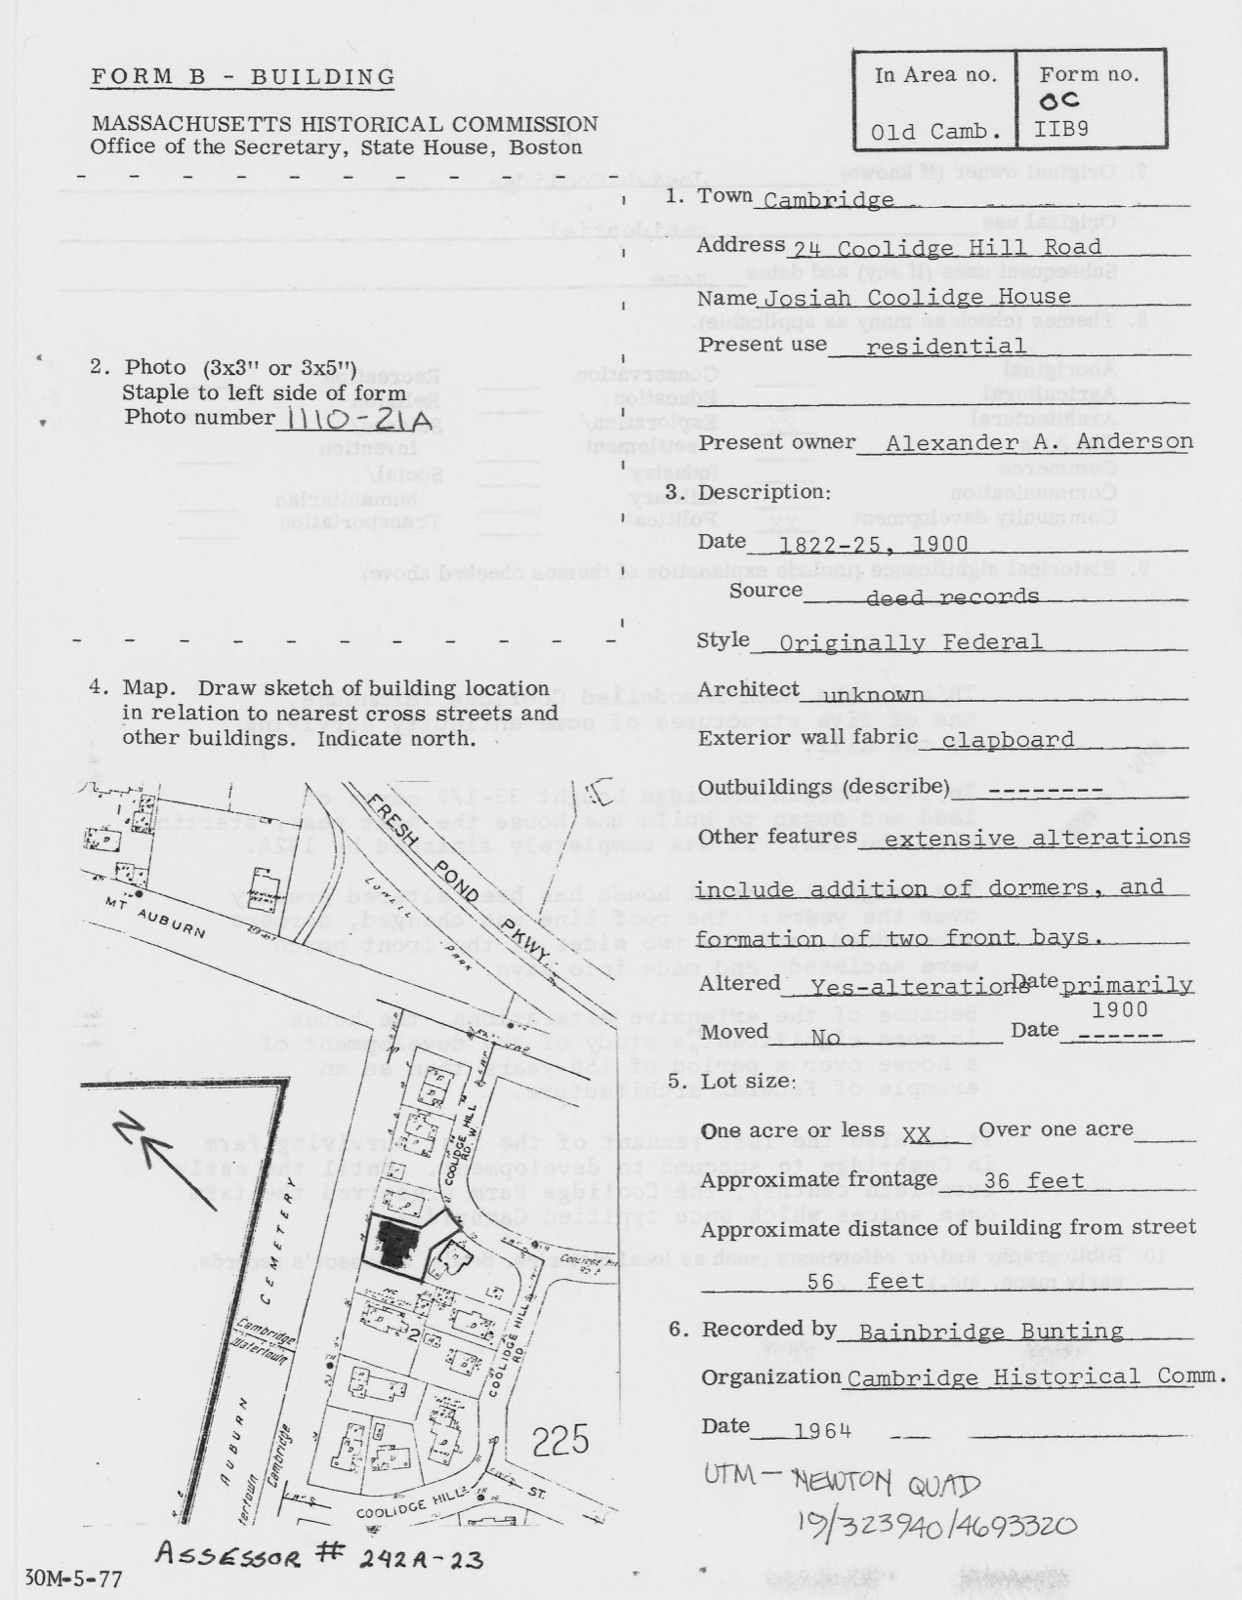 FORM B - BUILDING
In Area no.
Form no.
OC
Old Camb.
IIB9
MASSACHUSETTS HISTORICAL COMMISSION
Office of the Secretary, State House, Boston
1. Town Cambridge
Address 24 Coolidge Hill Road
Name Josiah Coolidge House
Present use residential
2. Photo (3x3" or 3x5")
Staple to left side of form
Photo number 1110-21A
Present owner Alexander A. Anderson
3. Description:
Date 1822-25, 1900
Source deed records
Style Originally Federal
4. Map. Draw sketch of building location
in relation to nearest cross streets and
other buildings. Indicate north.
Architect unknown
Exterior wall fabric clapboard
Outbuildings (describe) ---------
Other features extensive alterations
include addition of dormers, and
formation of two front bays.
Altered Yes-alterations Date primarily
1900
Moved No Date ------
5. Lot size:
One acre or less XX Over one acre
Approximate frontage 36 feet
Approximate distance of building from street
56 feet
6. Recorded by Bainbridge Bunting
Organization Cambridge Historical Comm.
Date 1964
UTM - NEWTON QUAD
19/323940/4693320
FRESH POND PKWY.
LOWELL PARK
MT AUBURN
N
COOLIDGE HILL
RD. W.
CEMETERY
Cambridge
Watertown
2
COOLIDGE HILL
RD
AUBURN
Cambridge
225
COOLIDGE HILL
ST.
ASSESSOR # 242A-23
30M-5-77